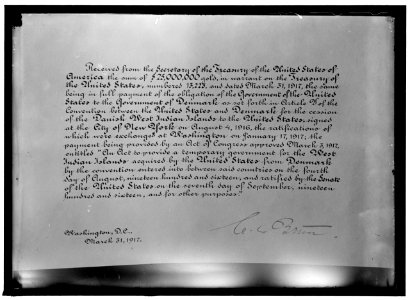 Received from the Secretary of the Treasury of the United States of
America the sum of $25,000,000 gold, in warrant on the Treasury of
the United States, numbered 15,223, and dated March 31, 1917, the same
being in full payment of the obligation of the Government of the United
States to the Government of Denmark as set forth in Article V of the
Convention between the United States and Denmark for the cession
of the Danish West Indian Islands to the United States, signed
at the City of New York on August 4, 1916, the ratifications of
which were exchanged at Washington on January 17, 1917; the
payment being provided by an Act of Congress approved March 3, 1917,
entitled "An Act to provide a temporary government for the West
Indian Islands acquired by the United States from Denmark
by the convention entered into between said countries on the fourth
day of August, nineteen hundred and sixteen, and ratified by the Senate
of the United States on the seventh day of September, nineteen
hundred and sixteen, and for other purposes."
Washington, D.C.
March 31, 1917.